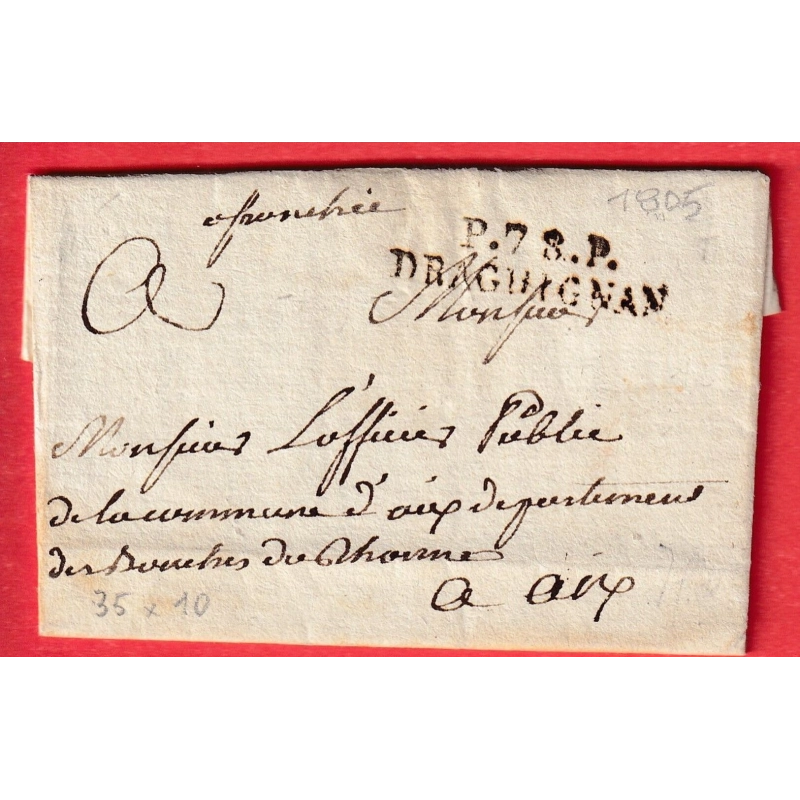 affranchie
1805
P.78.P.
DRAGUIGNAN
A Monsieur
Monsieur L'officier Public
de la commune d'aix departement
des Bouches du Rhonne
a aix
35 x 10